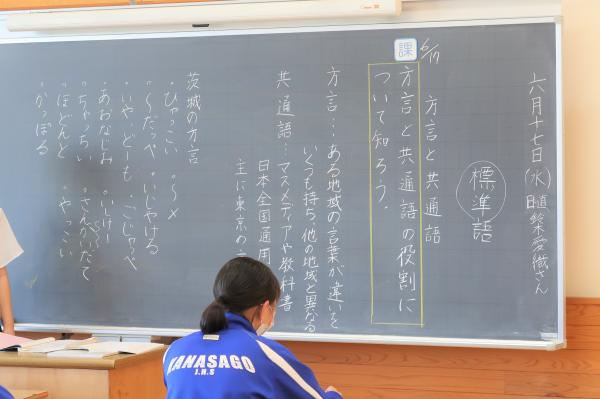 六月十七日（水）
日直
愛織さん
標準語
6/17
方言と共通語
課
方言と共通語の役割に
ついて知ろう。
方言…ある地域の言葉が違いを
いくつも持ち、他の地域と異なる
共通語…マスメディアや教科書
日本全国通用
主に東京の
茨城の方言
・ひゃっこい
・〜メ
・〜だっぺ
・いじやける
・いやどーも
・ごじゃっぺ
・あおなじみ
・いしけー
・ちゃっちい
・ほどんと
・やっこい
・かっぽる
KANASAGO
J.H.S